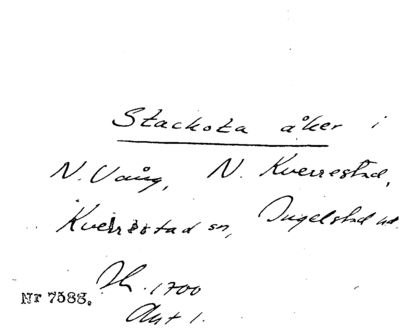 Stackota åker i
N. Vång, N. Kverrestad,
Kverrestad sn, Ingelstad hd.
Jb. 1700
Nr 7588.
Akt 1.